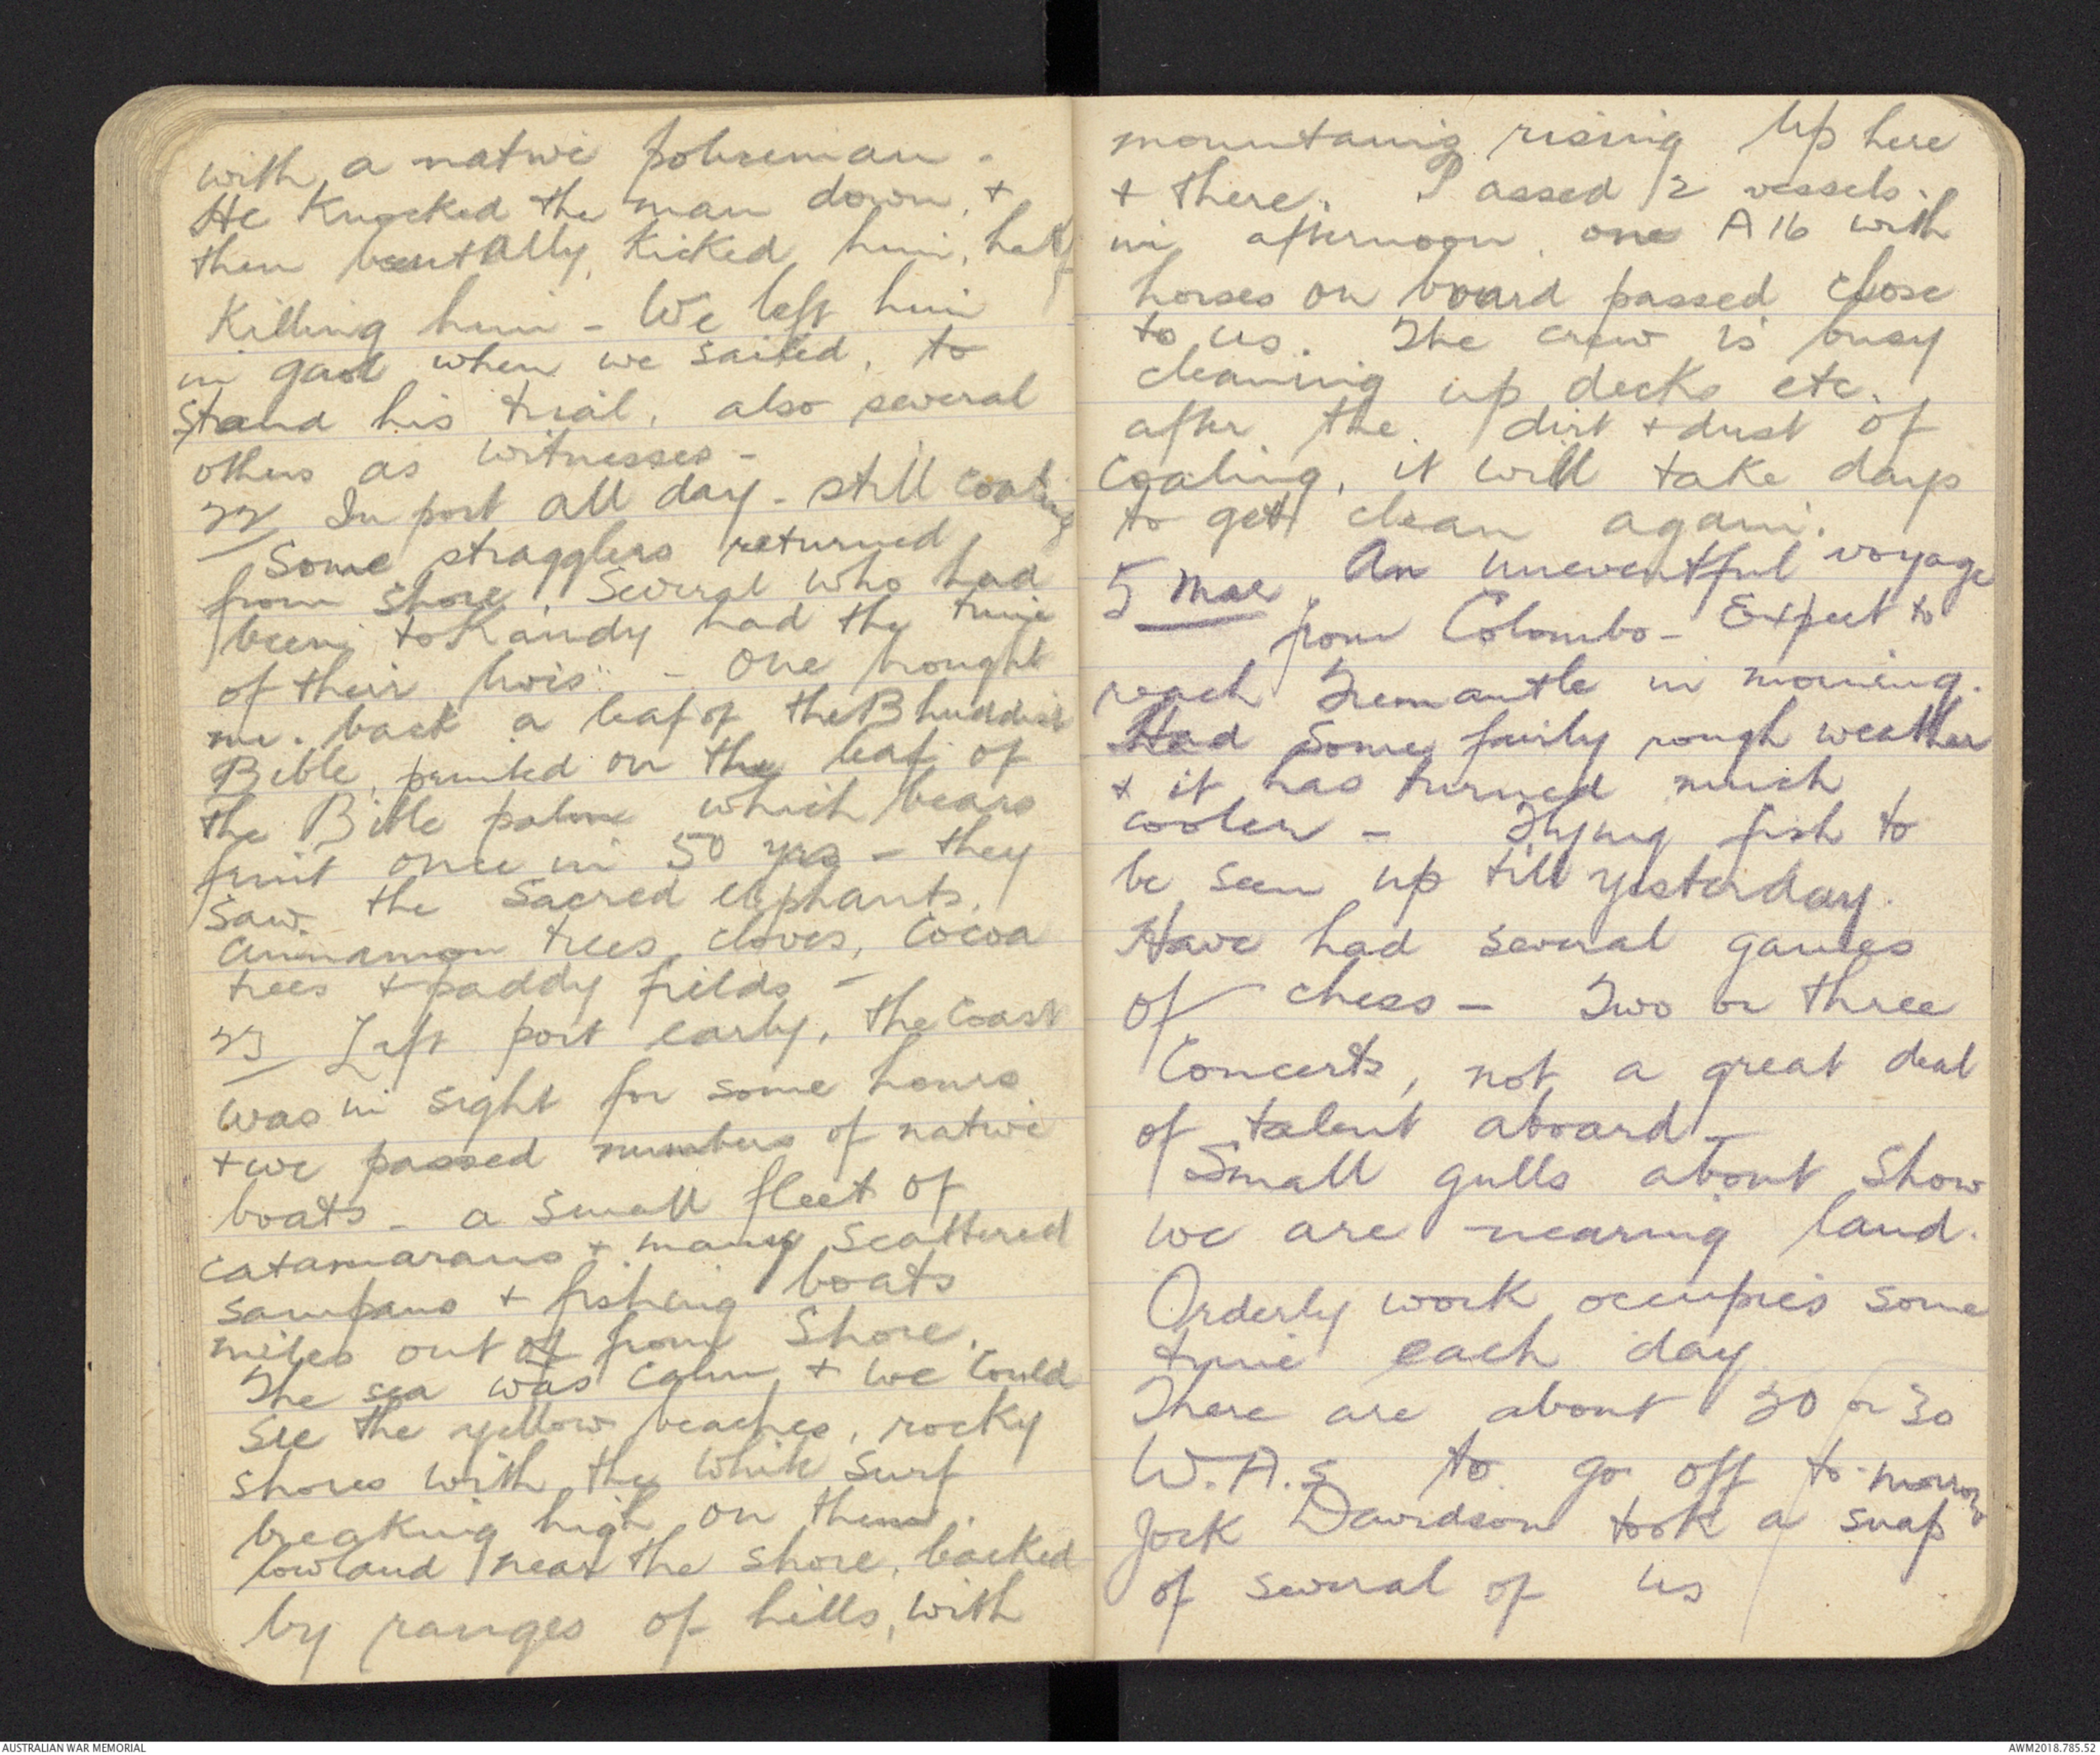 with a native policeman.
He knocked the man down, +
then brutally kicked him, half
killing him - We left him
in gaol when we sailed, to
stand his trial, also several
others as witnesses -
22 In port all day - still coaling
Some stragglers returned
from shore, Several who had
been to Kandy had the time
of their lives" - One brought
me back a leaf of the Bhuddist
Bible, printed on the leaf of
the Bible palm which bears
fruit once in 50 yrs - they
saw the sacred elephants.
Cinnamon trees, cloves, Cocoa
trees + paddy fields -
23 Left port early, the Coast
was in sight for some hours
+ we passed numbers of native
boats - a small fleet of
catamarans + many scattered
sampans + fishing boats
miles out of from Shore.
The sea was calm + we could
see the yellow beaches, rocky
shores with the white surf
breaking high on them.
low land near the shore, backed
by ranges of hills, with
mountains rising up here
+ there. Passed 2 vessels
in afternoon, one A16 with
horses on board passed close
to us. The crew is busy
cleaning up decks etc.
after the dirt + dust of
Coaling, it will take days
to get clean again.
5 Mar An uneventful voyage
from Colombo - Expect to
reach Fremantle in morning.
Had some fairly rough weather
+ it has turned much
cooler - Flying fish to
be seen up till yesterday.
Have had several games
of chess - Two or three
Concerts, not a great deal
of talent aboard -
Small gulls about show
we are nearing land.
Orderly work occupies some
time each day
There are about 20 or 30
W.A.s to go off to-morrow
Jock Davidson took a snap
of several of us
AUSTRALIAN WAR MEMORIAL
AWM2018.785.52